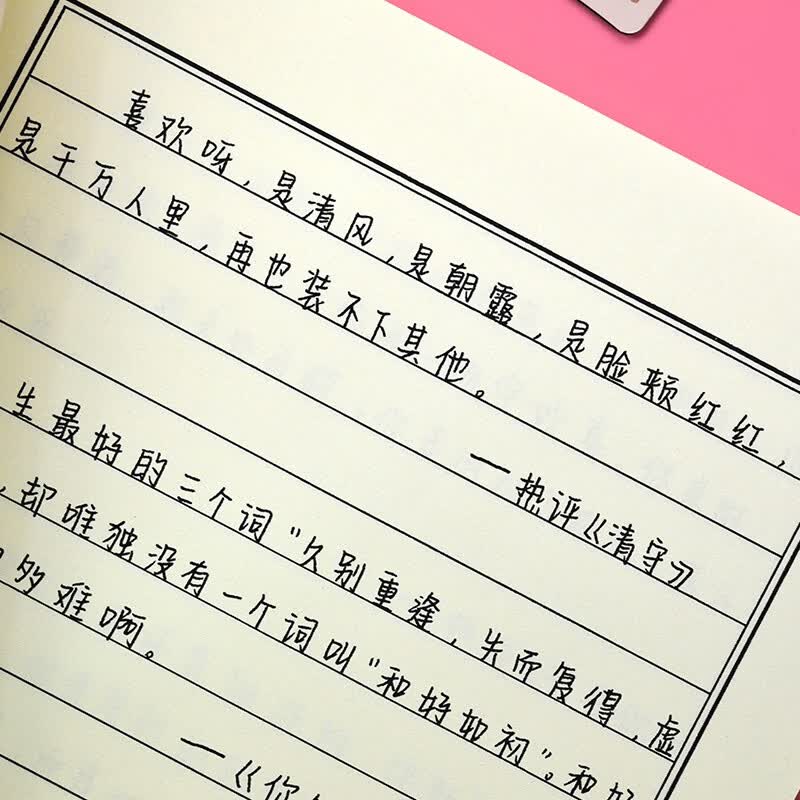 喜欢呀，是清风，是朝露，是脸颊红红，
是千万人里，再也装不下其他。
一热评《清守》
生最好的三个词"久别重逢，失而复得，虚
，却唯独没有一个词叫"和好如初"。和好
多难啊。
一《你